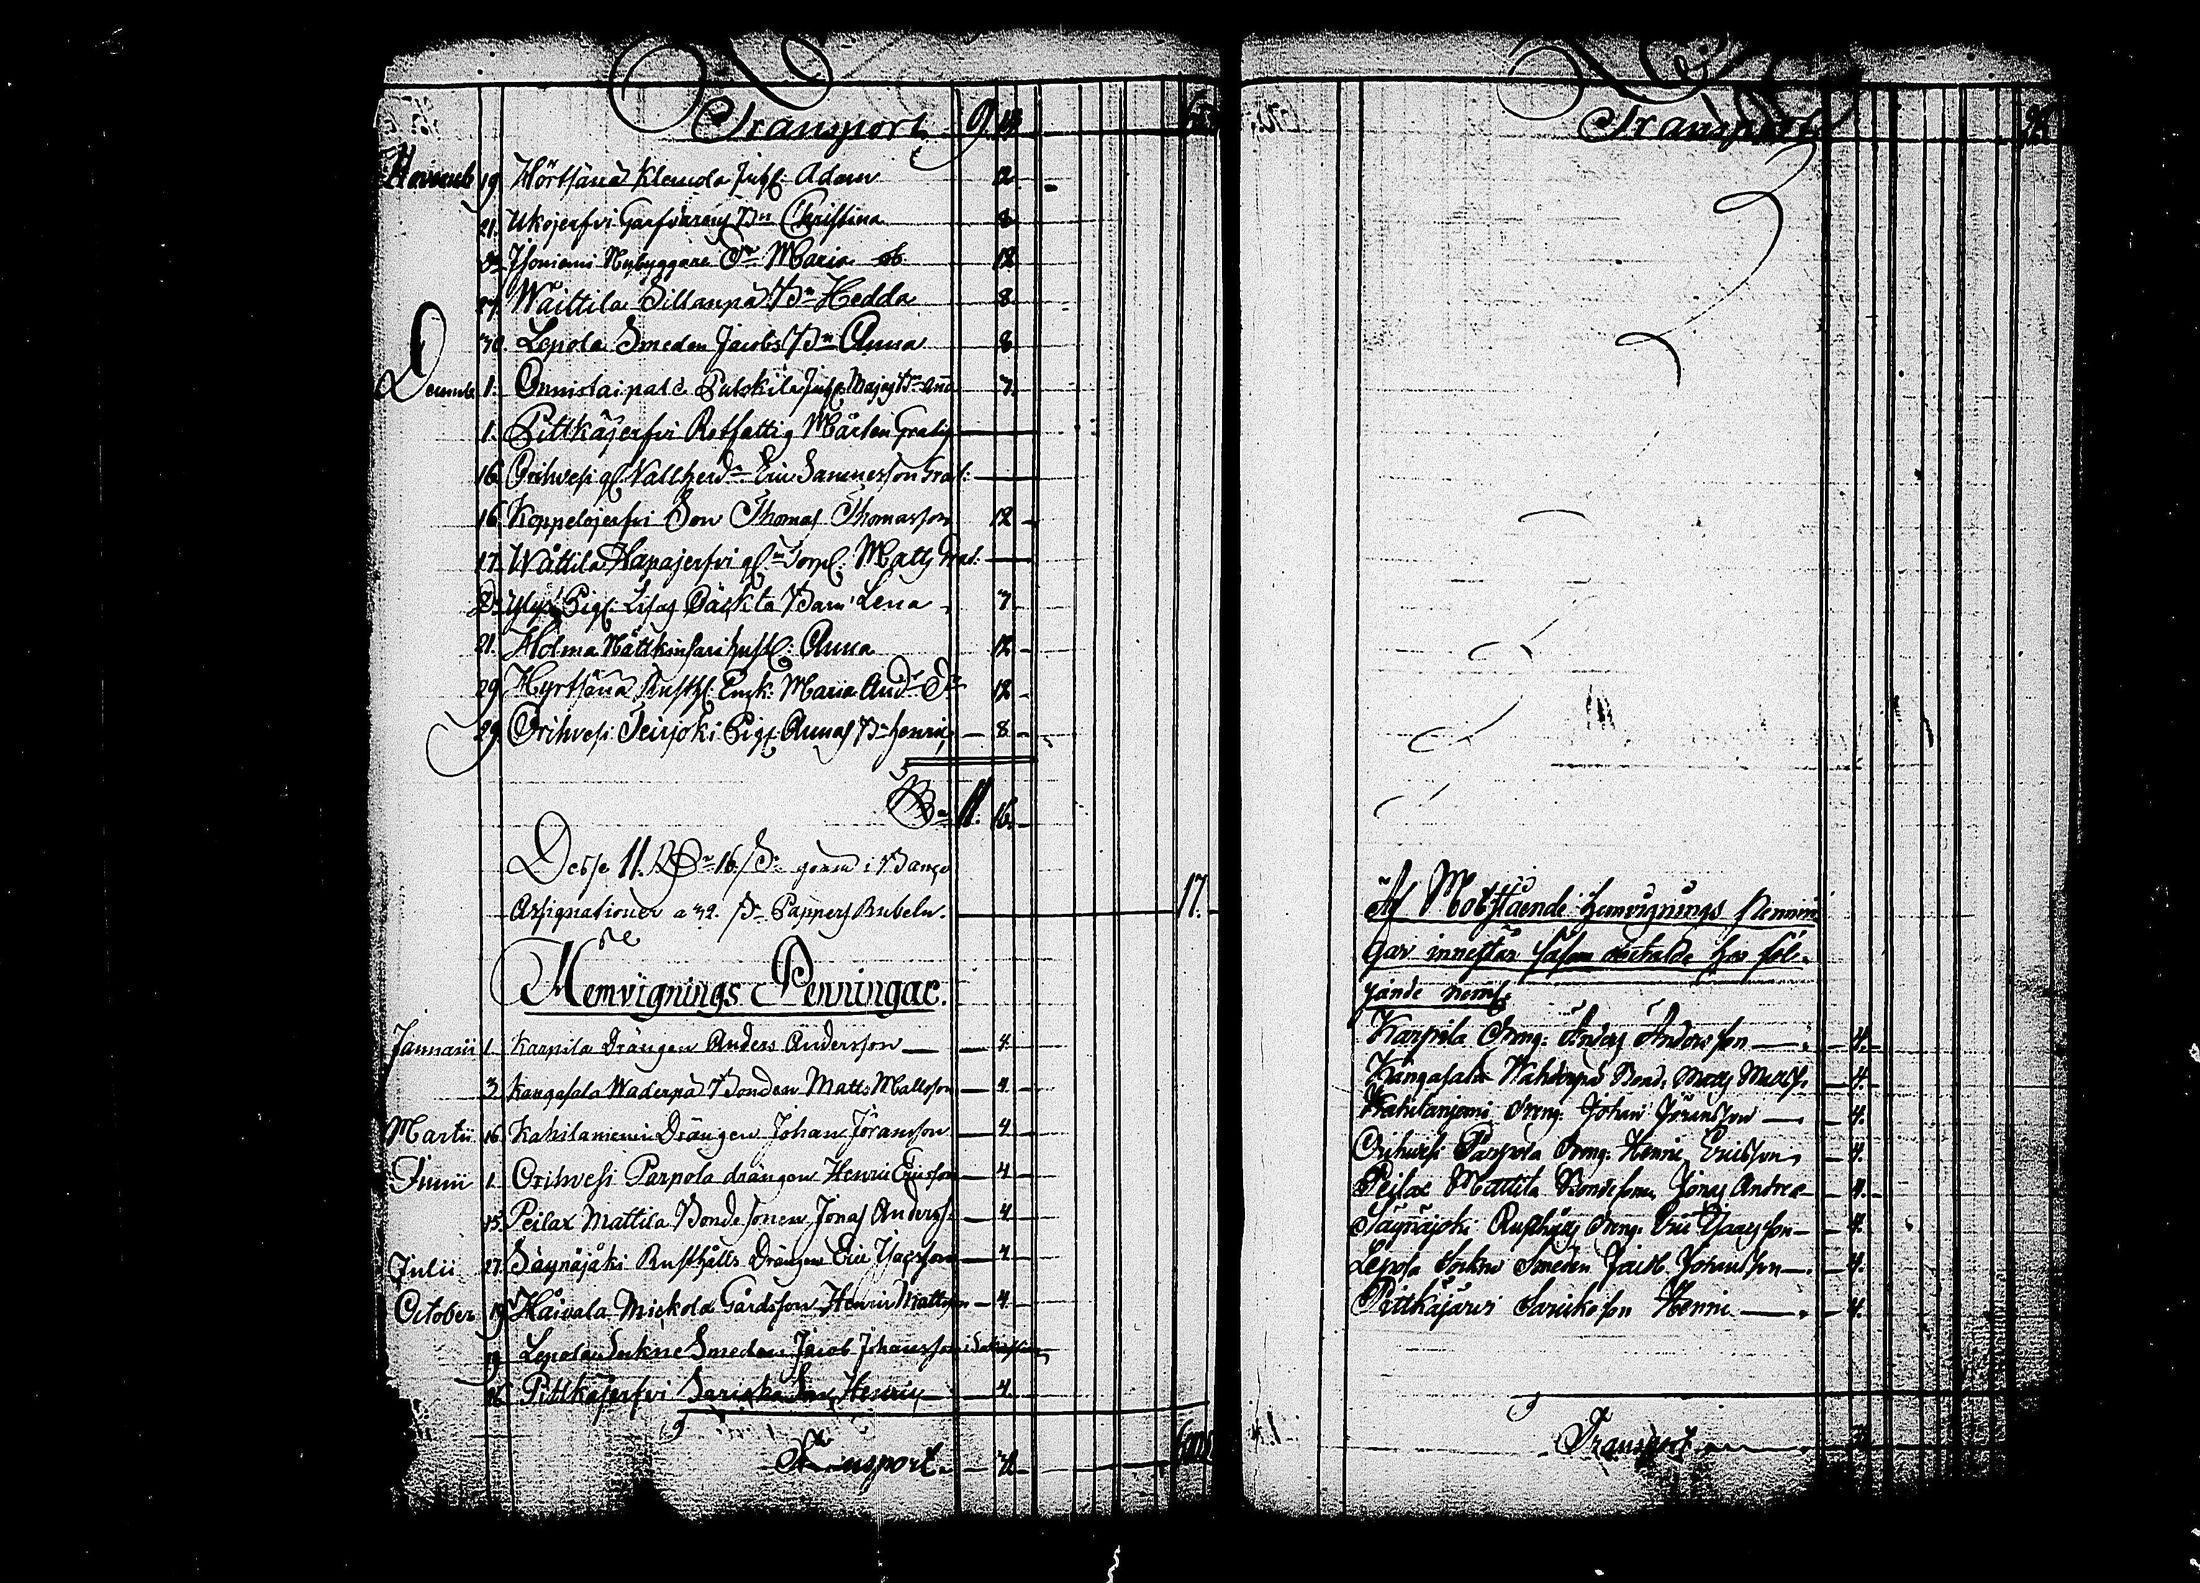 Transport 9.
Novemb 19. Hörtsänä Klemola Inhs: Adam 12
21. Ukojerfvi Garfvarens Bn Christina 8
Isoniemi Nybyggare Dr Maria 12
27. Wäittila Sillanpä Bn Hedda 8
30. Lepola Smeden Jacobs Bn Anna 8
Decemb. 1. Onnistaipale Inhs: Majas Bn Anna 7.
1. Pittkäjerfvi Rotfattig Mårten Gratis
16. Orihvesi Eric Grat:
16. Koppelojerfvi Son Thomas Thomasson 12
17. Wättila Hapajerfvi Torp: Matts Grat:
Pig: Lisas Oäckta Barn Lena 7
21. Holma Nättkinsari hust: Anna 12
29. Hyrtsänä Rusth: Enk: Maria And: Dr 12
29. Orihvesi Teirjoki Pig: Annas Bn Henric 8
11. 16.
Desse 11. Rdr 16 s. giorn i Banco
Assignationer a 32. s. Pappers Rubeln. 17.
Hemvignings Penningar.
Januarii 1. Karpila Drängen Anders Andersson 4.
3. Kangasala Waderpä Bonden Matts Mattsson 4.
Martii 16. Kahilaniemi Drängen Johan Jöransson 4
Junii 1. Orihvesi Parpola drängen Henric Ericsson 4
15. Peilax Mattila Bonde sonen Jonas Anderss: 4
Julii 27. Säynäjäki Rusthålls Drängen Eric Isacsson 4
October 19. Häivala Mickola Gårdsson Henric Mattsson 4
19. Lepola Sockne Smeden Jacob Johansson
26. Pittkäjerfvi Saricka Son Henric 4
Transport
Transport
Af Motstående Hemvignings Pennin
gar innestår såsom hos föl-
jande neml:
Karpila Dreng: Anders Andersson 4.
Kangasala Wahderpä Bond: Matts Matss: 4.
Kahilaniemi Dreng: Johan Jöransson 4.
Orihvesi Parpola Dreng: Henric Ericsson 4.
Peilax Mattila Bondesonen Jonas Anders 4.
Säynäjoki Rusthålls Dreng: Eric Isacsson 4.
Lepola Sockne Smeden Jacob Johansson 4.
Pittkäjärvi Saricka son Henric 4.
Transport